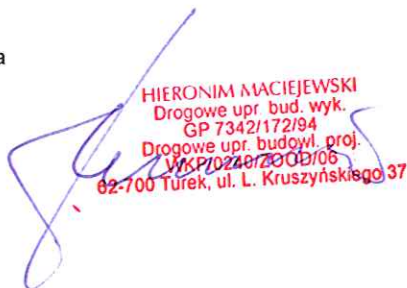 a
HIERONIM MACIEJEWSKI
Drogowe upr. bud. wyk.
GP 7342/172/94
Drogowe upr. budowl. proj.
WKP/0240/ZOOD/06
62-700 Turek, ul. L. Kruszyńskiego 37